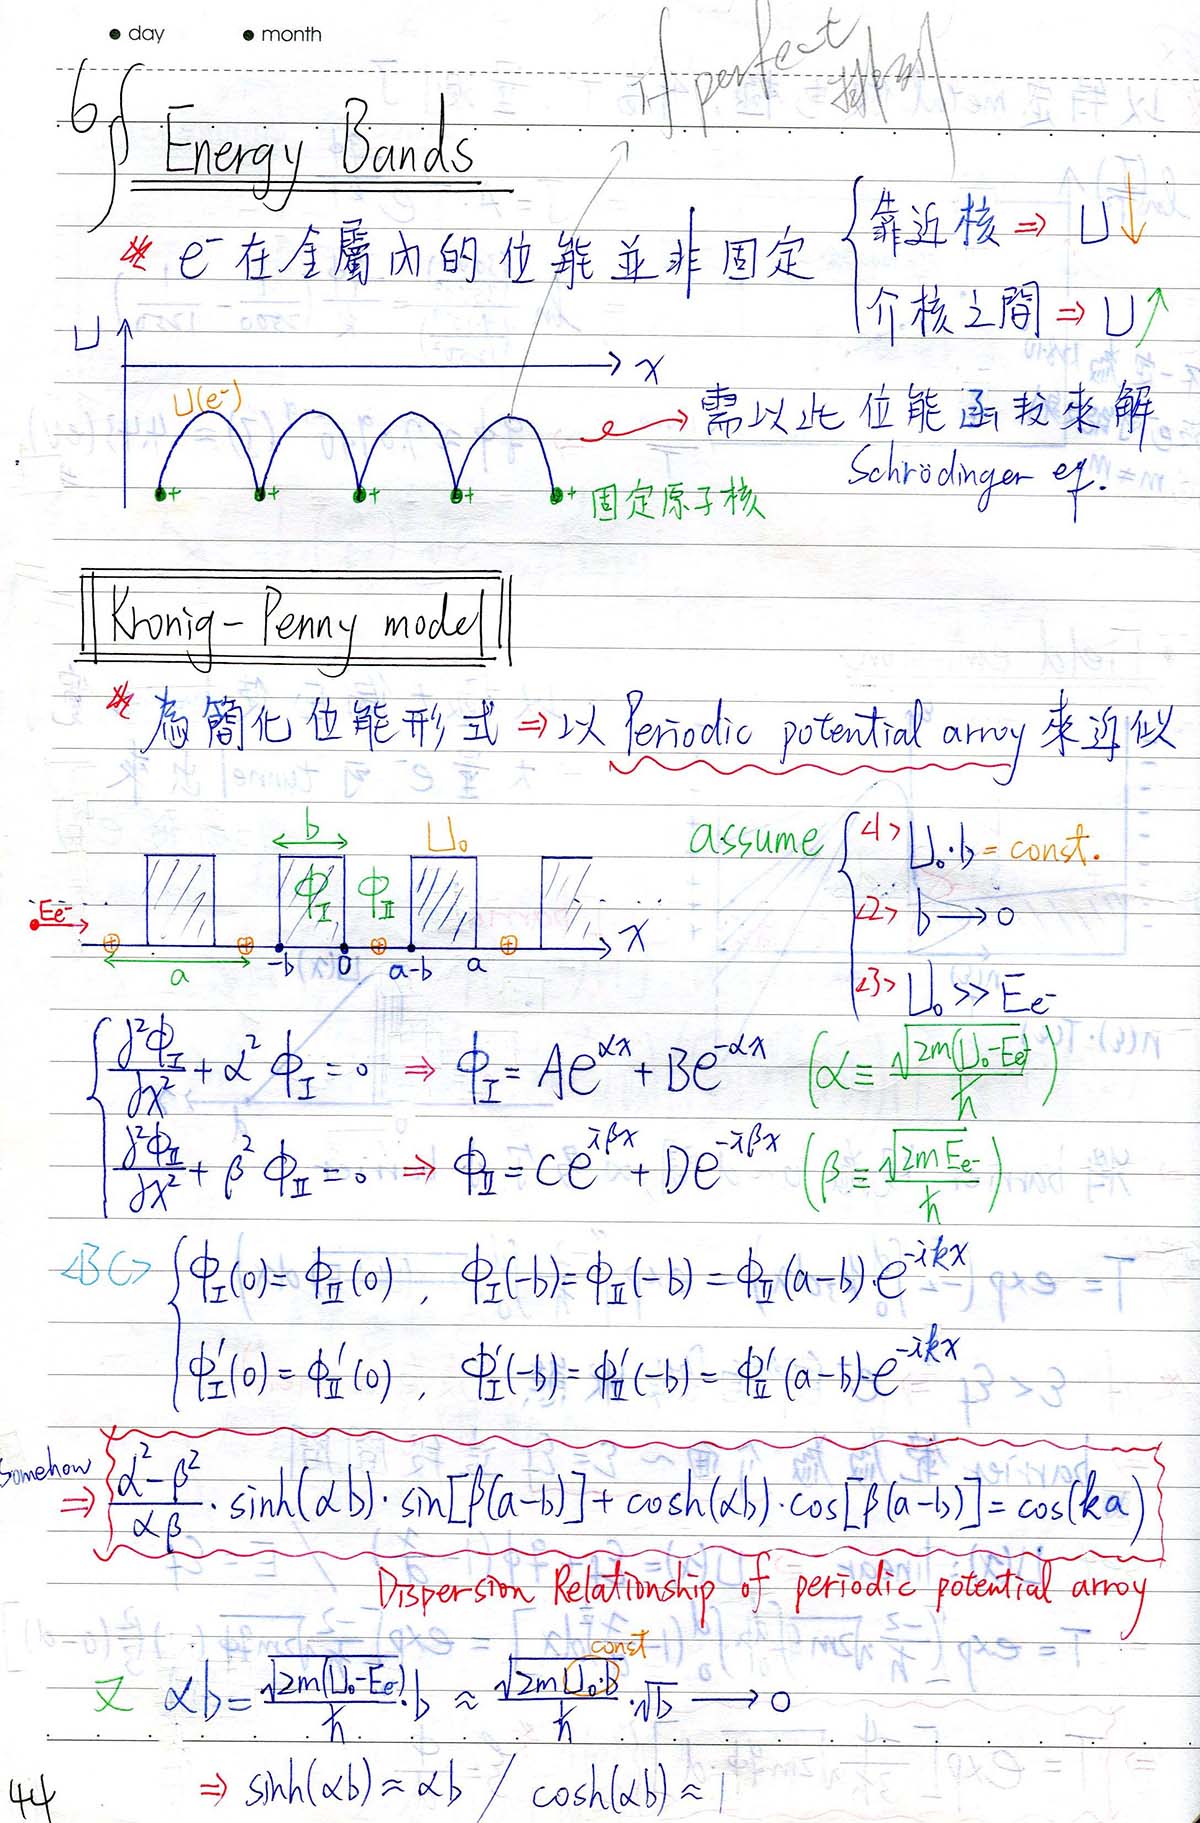 ● day ● month
if perfect 排列
6 § Energy Bands
※ e⁻ 在金屬內的位能並非固定 { 靠近核 ⇒ U↓
介核之間 ⇒ U↑
U
x
U(e⁻)
+ + + + +
固定原子核
需以此位能函数來解
Schrödinger eq.
Kronig-Penny model
※ 為簡化位能形式 ⇒ 以 Periodic potential array 來近似
b U₀
Φ_I Φ_II
Ee⁻
x
a -b 0 a-b a
assume { <1> U₀·b = const.
<2> b → 0
<3> U₀ >> Ee⁻
∂²Φ_I/∂x² + α² Φ_I = 0 ⇒ Φ_I = Ae^{αx} + Be^{-αx} (α ≡ √(2m(U₀-Ee⁻))/ħ)
∂²Φ_II/∂x² + β² Φ_II = 0 ⇒ Φ_II = Ce^{iβx} + De^{-iβx} (β ≡ √(2mEe⁻)/ħ)
<BC> { Φ_I(0) = Φ_II(0) , Φ_I(-b) = Φ_II(-b) = Φ_II(a-b)·e^{-ikx}
Φ_I'(0) = Φ_II'(0) , Φ_I'(-b) = Φ_II'(-b) = Φ_II'(a-b)·e^{-ikx}
Somehow
⇒ (α²-β²)/(αβ) · sinh(αb)·sin[β(a-b)] + cosh(αb)·cos[β(a-b)] = cos(ka)
Dispersion Relationship of periodic potential array
const
又 αb = √(2m(U₀-Ee⁻))/ħ · b ≈ √(2m U₀·b)/ħ · √b → 0
⇒ sinh(αb) ≈ αb / cosh(αb) ≈ 1
44